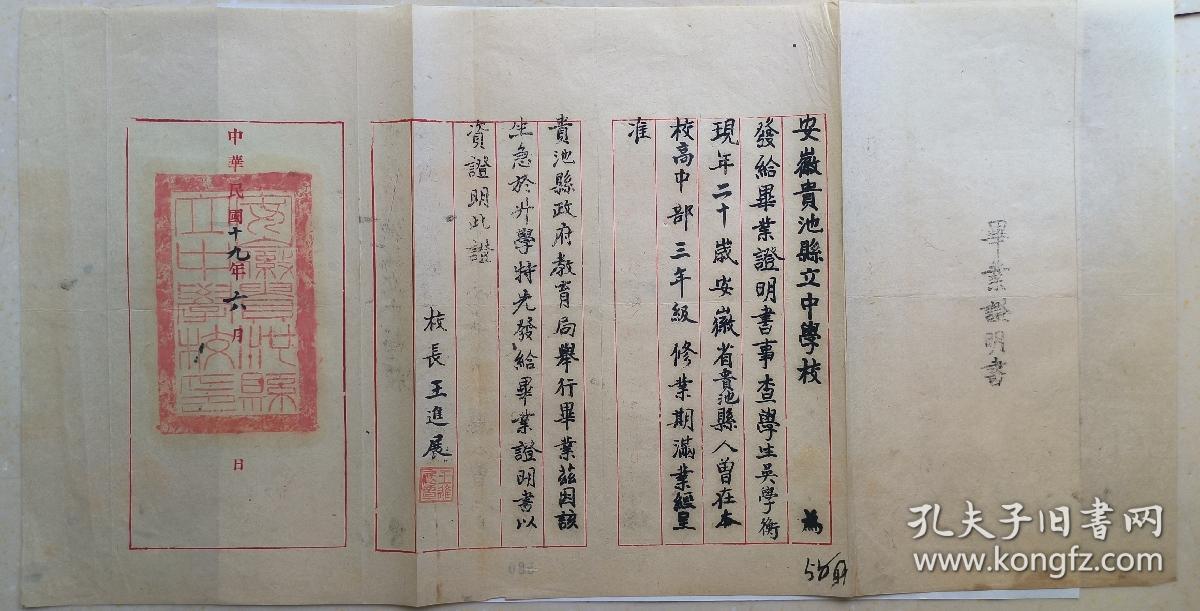 畢業證明書
安徽貴池縣立中學校 為
發給畢業證明書事查學生吳學衡
現年二十歲安徽省貴池縣人曾在本
校高中部三年級修業期滿業經呈
准
貴池縣政府教育局舉行畢業茲因該
生急於升學特先發給畢業證明書以
資證明此證
校長王進展
中華民國十九年六月 日
安徽貴池縣
立中學校印
孔夫子旧书网
www.kongfz.com